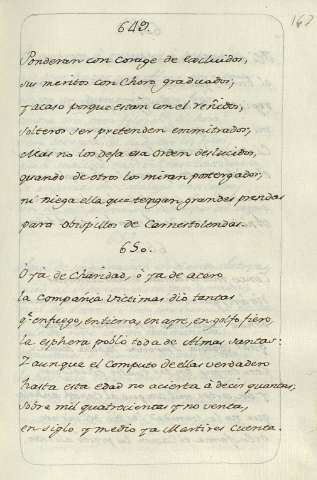 649.
167
Ponderan con Corage de excluidos,
sus meritos con Choro graduados,
y acaso porque están con el reñidos,
solteros ser pretenden enmitrados,
Mas no los dexa esa Orden deslucidos,
quando de otros los miran postergados,
ni niega ella que tengan grandes prendas
para Obispillos de Carnestolendas.
650.
O ya de Charidad, ò ya de acero
la Compañia Victimas dió tantas
q.e en fuego, en tierra, en ayre, en golfo fiero,
la esphera pobló toda de Almas santas:
Y aunque el computo de ellas verdadero
hasta esta edad no acierta á decir quantas,
sobre mil quatrocientas y no venta,
en siglo y medio ya Martires cuenta.